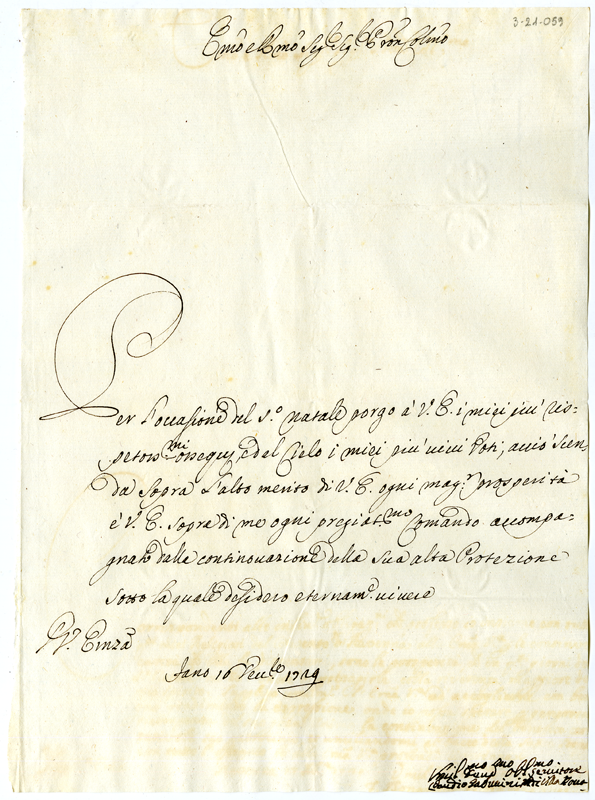 3-21-059
Emo e Rmo Sig.e Sig.e Pron Colmo
Per l'occasione del S.o Natale porgo à V.E. i miei piu' ris=
petosis.mi ossequij, e dal Cielo i miei piu' vivi Voti, acciò scen,
da sopra l'alto merito di V.E. ogni mag.r prosperità
è V.E. sopra di me ogni pregiat.mo Comando accompa=
gnato dalla continovazione della sua alta Protezione
sotto la quale desidero eternam.e vivere
V.a Emza
Fano 16 1729
Servitore